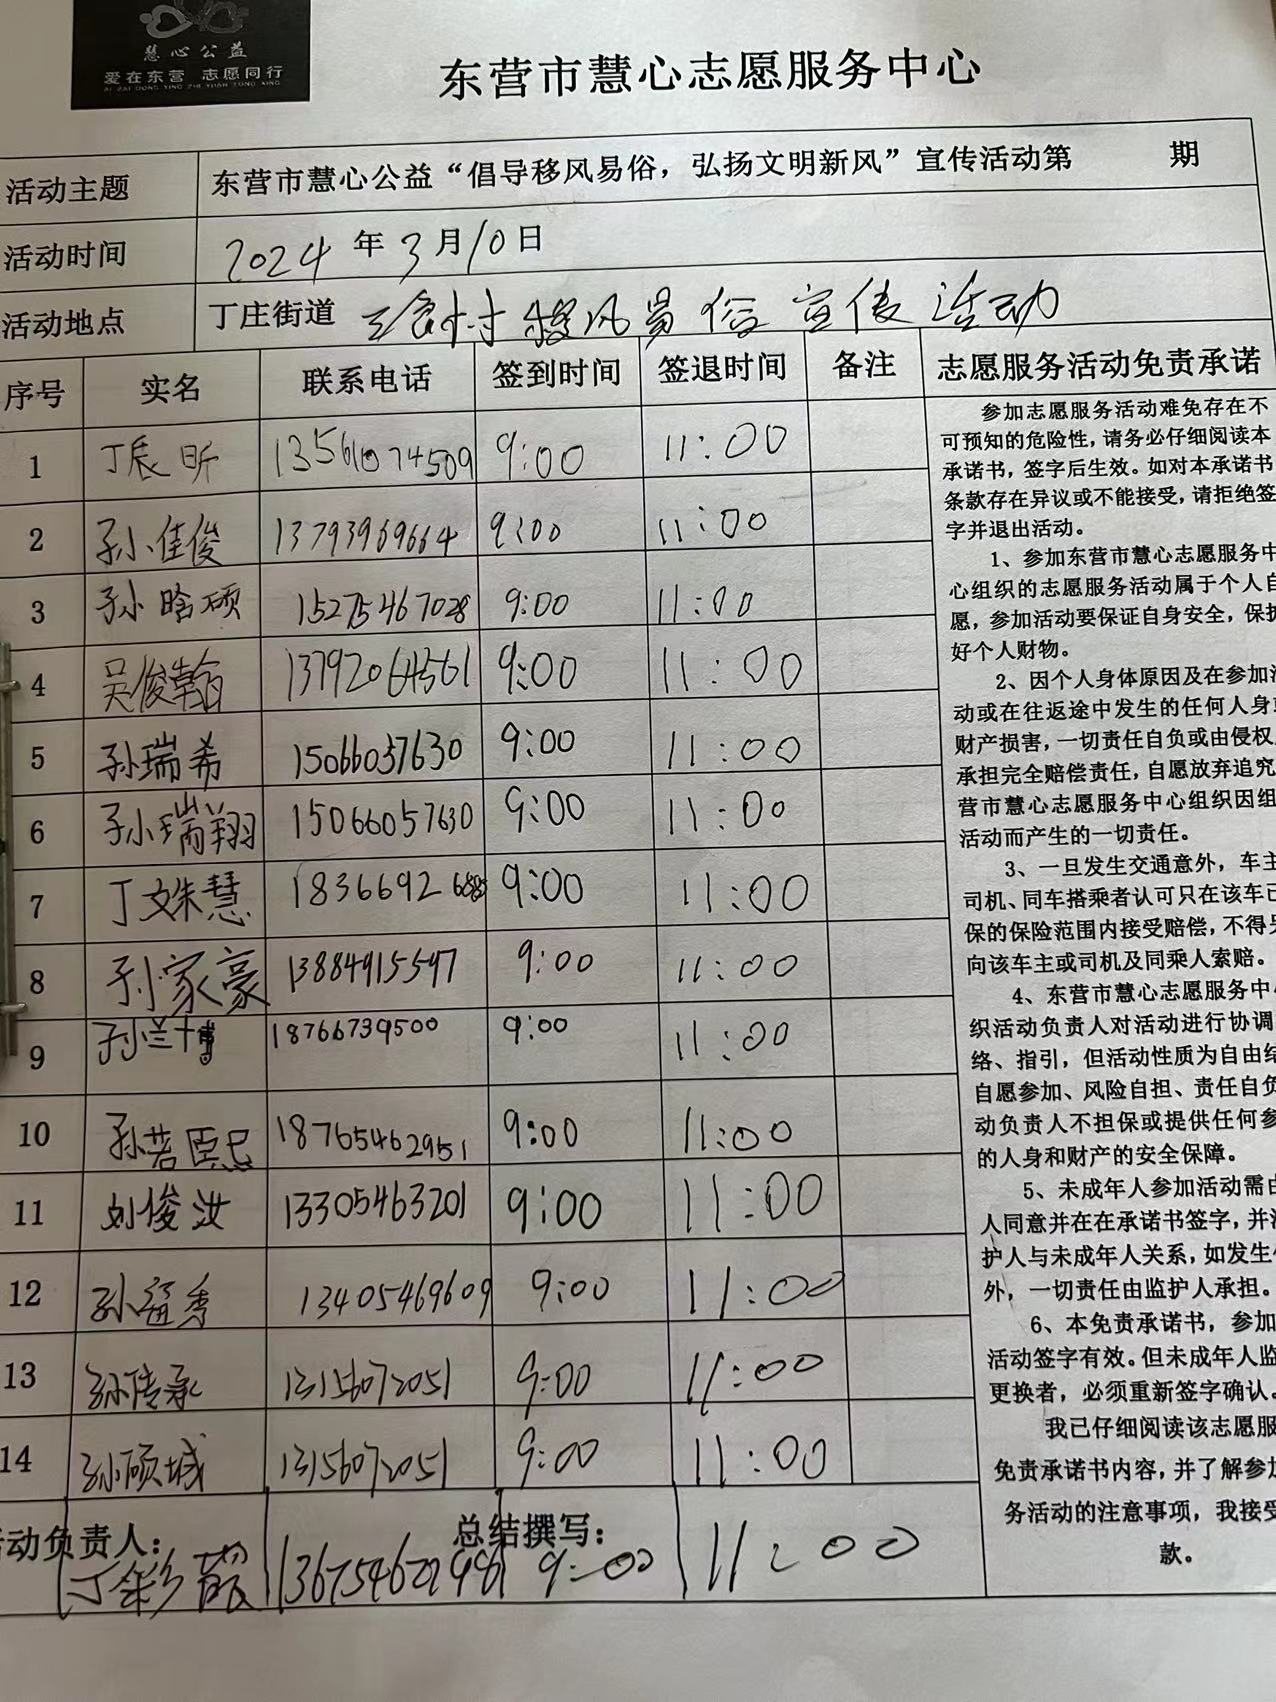 慧心公益
爱在东营 志愿同行
AI ZAI DONG YING ZHI YUAN TONG XING
东营市慧心志愿服务中心
活动主题 东营市慧心公益“倡导移风易俗，弘扬文明新风”宣传活动第 期
活动时间 2024年3月10日
活动地点 丁庄街道 村移风易俗宣传活动
序号 实名 联系电话 签到时间 签退时间 备注 志愿服务活动免责承诺
1 丁辰昕 13561074509 9:00 11:00
2 孙佳俊 13793969664 9:00 11:00
3 孙晗硕 15275467028 9:00 11:00
4 吴俊翰 13792064561 9:00 11:00
5 孙瑞希 15066057630 9:00 11:00
6 孙瑞翔 15066057630 9:00 11:00
7 丁姝慧 9:00 11:00
8 孙家豪 13884915547 9:00 11:00
9 孙兰博 18766739500 9:00 11:00
10 孙若熙 18765462951 9:00 11:00
11 刘俊汝 13305463201 9:00 11:00
12 孙 秀 13405469609 9:00 11:00
13 孙传承 13156072051 9:00 11:00
14 孙硕城 13156072051 9:00 11:00
动负责人： 总结撰写：
丁彩霞 9:00 11:00
参加志愿服务活动难免存在不
可预知的危险性，请务必仔细阅读本
承诺书，签字后生效。如对本承诺书
条款存在异议或不能接受，请拒绝签
字并退出活动。
1、参加东营市慧心志愿服务中
心组织的志愿服务活动属于个人自
愿，参加活动要保证自身安全，保护
好个人财物。
2、因个人身体原因及在参加活
动或在往返途中发生的任何人身或
财产损害，一切责任自负或由侵权
承担完全赔偿责任，自愿放弃追究
营市慧心志愿服务中心组织因组
活动而产生的一切责任。
3、一旦发生交通意外，车主
司机、同车搭乘者认可只在该车已
保的保险范围内接受赔偿，不得另
向该车主或司机及同乘人索赔。
4、东营市慧心志愿服务中心
织活动负责人对活动进行协调
络、指引，但活动性质为自由结
自愿参加、风险自担、责任自负
动负责人不担保或提供任何参
的人身和财产的安全保障。
5、未成年人参加活动需由
人同意并在在承诺书签字，并注
护人与未成年人关系，如发生
外，一切责任由监护人承担。
6、本免责承诺书，参加
活动签字有效。但未成年人监
更换者，必须重新签字确认。
我已仔细阅读该志愿服
免责承诺书内容，并了解参加
务活动的注意事项，我接受
款。